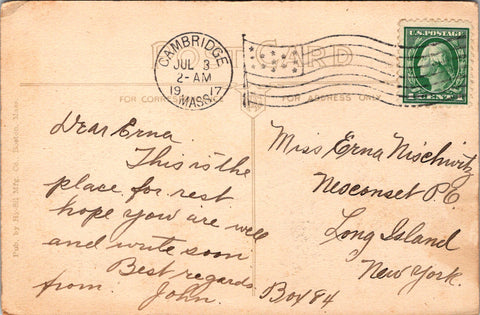 POST CARD
CAMBRIDGE
JUL 3
2-AM
19 17
MASS.
U.S. POSTAGE
1 CENT 1
FOR CORRESPONDENCE
FOR ADDRESS ONLY
Pub. by Mfg. Co. Boston, Mass.
Dear Erna
This is the
place for rest
hope you are well
and write soon
Best regards
from John.
Miss Erna Nischwitz
Nesconset P.O.
Long Island
New York.
Box 84